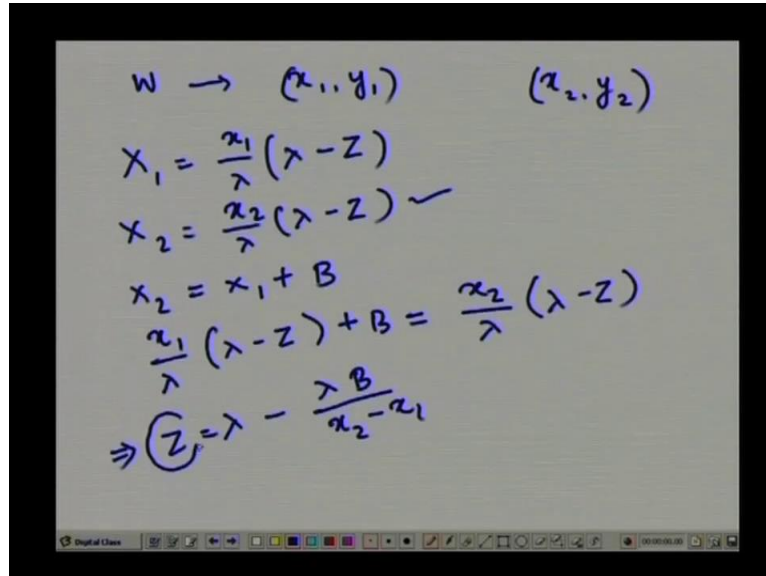 W → (x₁, y₁) (x₂, y₂)
X₁ = x₁/λ (λ − Z)
X₂ = x₂/λ (λ − Z) ✓
X₂ = X₁ + B
x₁/λ (λ − Z) + B = x₂/λ (λ − Z)
⇒ Z = λ − λB/(x₂ − x₁)
Digital Class 00:00:00.00